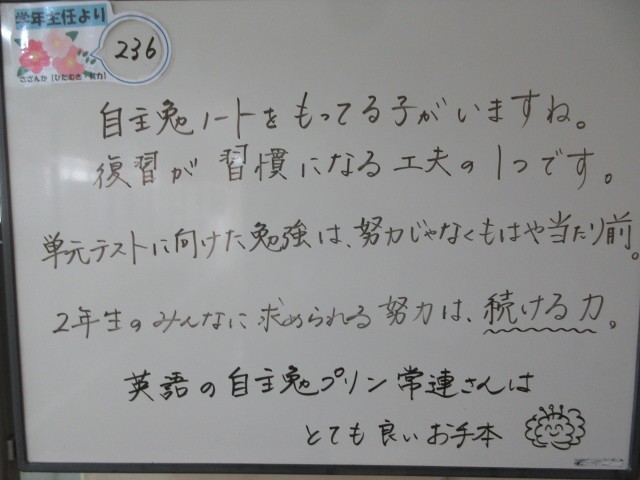 学年主任より
236
さざんか［ひたむき・努力］
自主勉ノートをもってる子がいますね。
復習が習慣になる工夫の1つです。
単元テストに向けた勉強は、努力じゃなくもはや当たり前。
2年生のみんなに求められる努力は、続ける力。
英語の自主勉プリン常連さんは
とても良いお手本